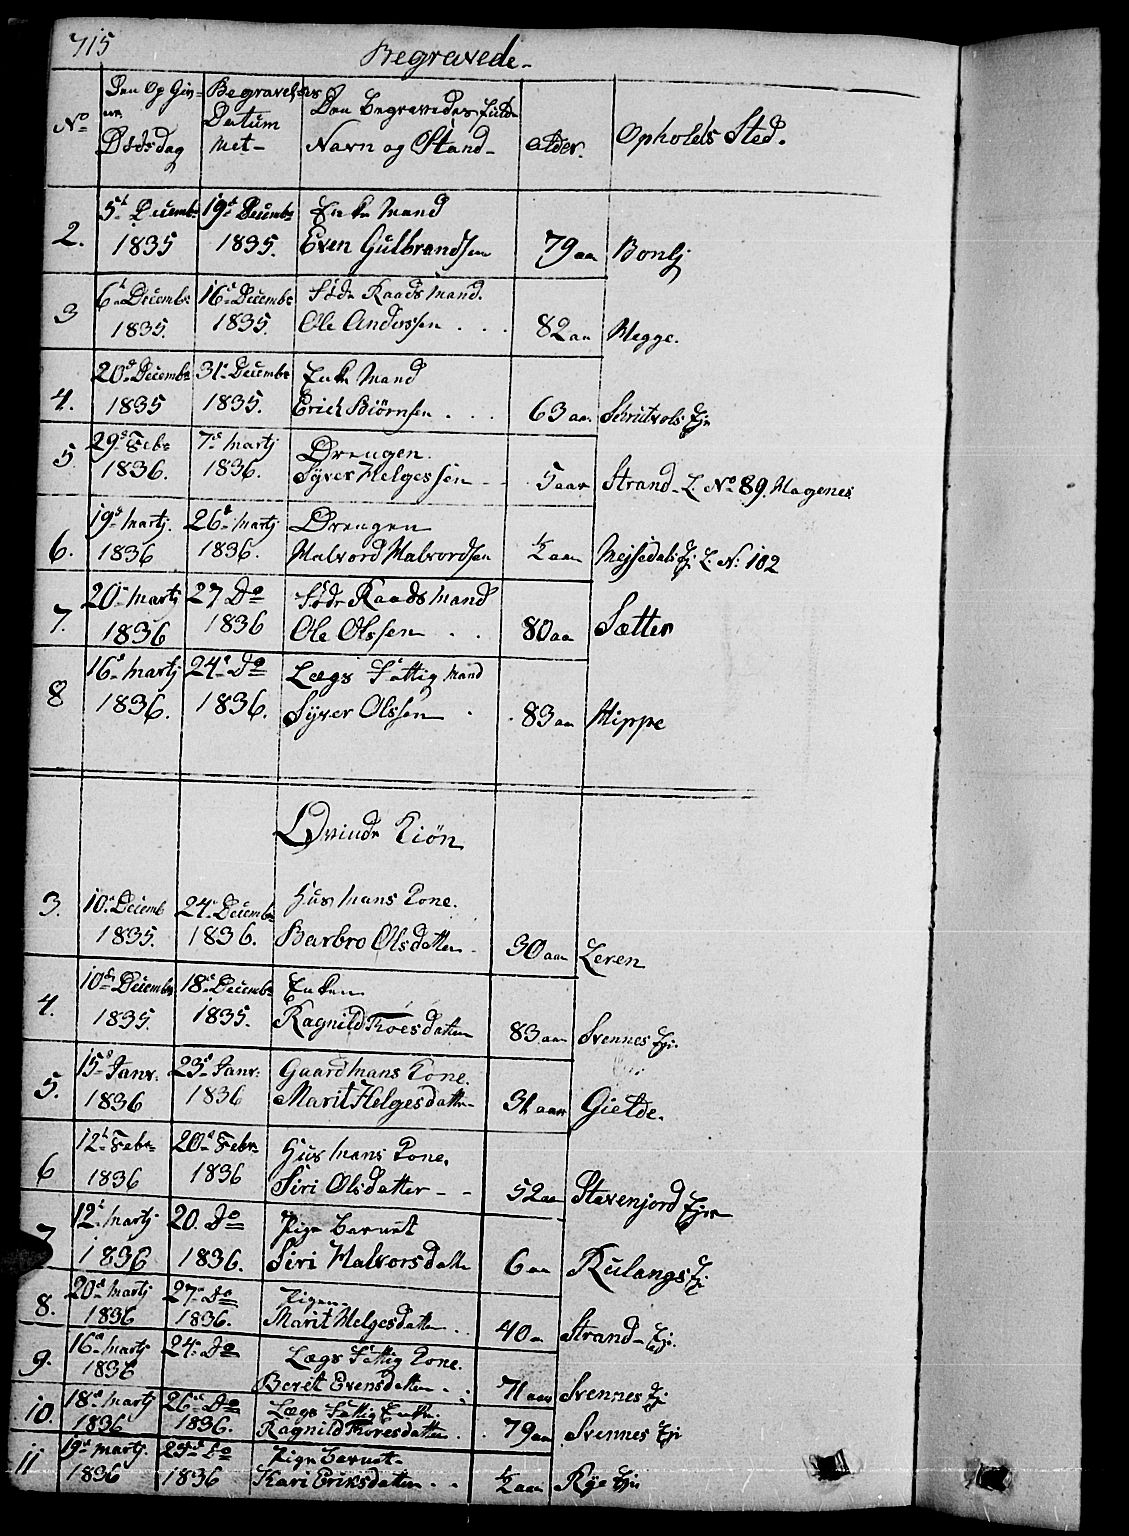 715
Begravede.
No
Den Op Giv-
ne
Dødsdag
Begravelses
Datum
met-
Den begravedes fulde
Navn og Stand-
alder.
Opholds Sted.
2. 5t Decembr 1835 19d Decembr 1835. Enke Mand
Even Gulbrandsen 79 aar Bonli
3 6t Decembr 1835. 16d Decembr 1835. Føde Raads Mand.
Ole Anderssen . . . 82 aar Hegge.
4. 20d Decembr 1835 31d Decembr 1835. Enke Mand
Erich Biörnsen . . . 63 aar Schrutvols Eje
5 29d Febr 1836. 7d Martj 1836. Drengen.
Syver Helgessen - - 5 aar Strand L. No 89. Hagenes
6. 19d Martj. 1836 26d Martj 1836. Drengen
Halvord Halvordsen ½ aar L. N: 102
7. 20d Martj 1836 27 Do 1836 Føde Raads Mand
Ole Olssen . . 80 aa Sætter
8 16d Martj 1836. 24d Do 1836. Lægs Fattig Mand
Syver Olssen . . 83 aa Hippe
Qvinde Kiön
3. 10d Decemb 1835. 24d Decembr 1836. Hus Mans Kone.
Barbro Olsdatter - 30 aar Leren
4. 10de Decembr 1835. 18d Decembr 1835. Enken
Ragnild Thoresdatter 83 aar Svennes Eje.
5. 15d Janr. 1836 23d Janr. 1836 Gaard Mans Kone.
Marit Helgesdatter- 31 aar Gielde.
6 12t Febr 1836 20d Febr 1836 Hus Mans Kone.
Siri Olsdatter - - 52 aar Stavenjord Eje
7 12t Martj 1836 20. Do 1836. Pige Barnet
Siri Halvorsdatte 6 aa Rulangs Ej
8. 20d Martj 1836 27d Do 1836. Pigen-
Marit Helgesdatter . . 40 a Strand- Eje.
9. 16d Martj 1836 24d Do Lægs Fattig Kone.
Berit Evensdatter - . 71 aar Svennes Ej
10. 18d Martj 1836 26d Do 1836. Lægs Fattig Enke.
Ragnild Thoresdatter . . 79 aa Svennes Eje
11 19d Martj. 1836 25d Do 1836 Pige Barnet-
Kari Eriksdatter . . ½ aar Rye Eje